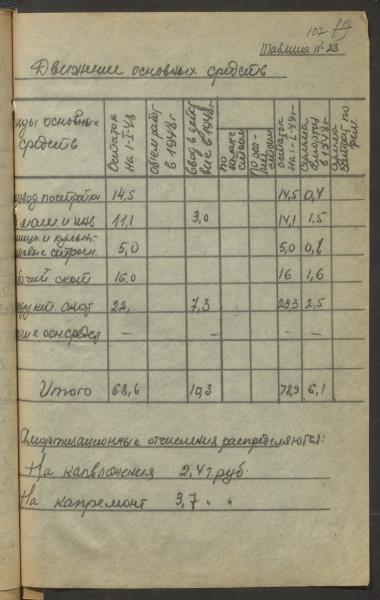 107 19
Таблица № 23
Движение основных средств
виды основных средств
Остаток на 1-I-48
объем работ в 1948г
Ввод в дейст вие в 1948г
Остаток на 1-I-49г
Сумма амортиз в 1948г
вод постройки 14,5 14,5 0,4
маш и инв 11,1 3,0 14,1 1,5
5,0 5,0 0,1
бочий скот 16,0 16 1,6
дукт скот 22, 7,3 29,3 2,5
чие осн. средст — — — —
Итого 68,6 10,3 78,9 6,1
Амортизационные отчисления распределяются:
На капвложения 2,4 т.руб.
На капремонт 3,7 " "